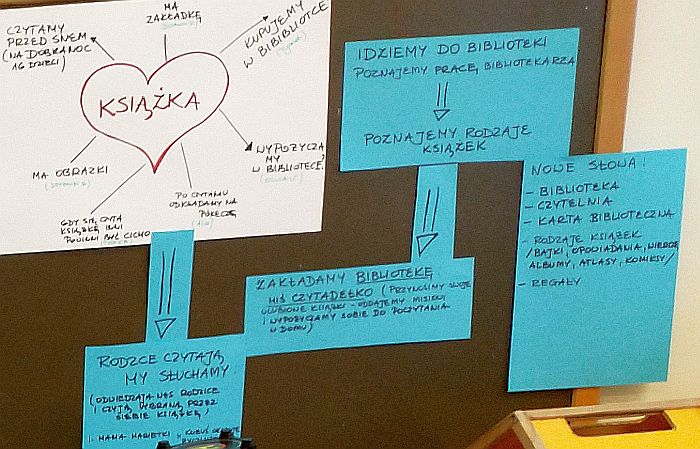 CZYTAMY
PRZED SNEM
(NA DOBRANOC
16 DZIECI)
MA
ZAKŁADKĘ
KUPUJEMY
W BIBIBLIOTCE
KSIĄŻKA
MA OBRAZKI
GDY SIĘ CZYTA
KSIĄŻKĘ INNI
POWINNI BYĆ CICHO
PO CZYTANIU
ODKŁADAMY NA
PÓŁECZKĘ
WYPOŻYCZA
MY
W BIBLIOTECE
IDZIEMY DO BIBLIOTEKI
POZNAJEMY PRACĘ BIBLIOTEKARZA
POZNAJEMY RODZAJE
KSIĄŻEK
NOWE SŁOWA!
- BIBLIOTEKA
- CZYTELNIA
- KARTA BIBLIOTECZNA
- RODZAJE KSIĄŻEK
/BAJKI, OPOWIADANIA, WIERSZE
ALBUMY, ATLASY, KOMIKSY/
- REGAŁY
ZAKŁADAMY BIBLIOTEKĘ
MIŚ CZYTADEŁKO (PRZYNOSIMY SWOJE
ULUBIONE KSIĄŻKI - ODDAJEMY MISIOWI
I WYPOŻYCZAMY SOBIE DO POCZYTANIA
W DOMU)
RODZCE CZYTAJĄ,
MY SŁUCHAMY
(ODWIEDZAJĄ NAS RODZICE
I CZYJĄ WYBRANĄ PRZEZ
SIEBIE KSIĄŻKĘ)
1. MAMA